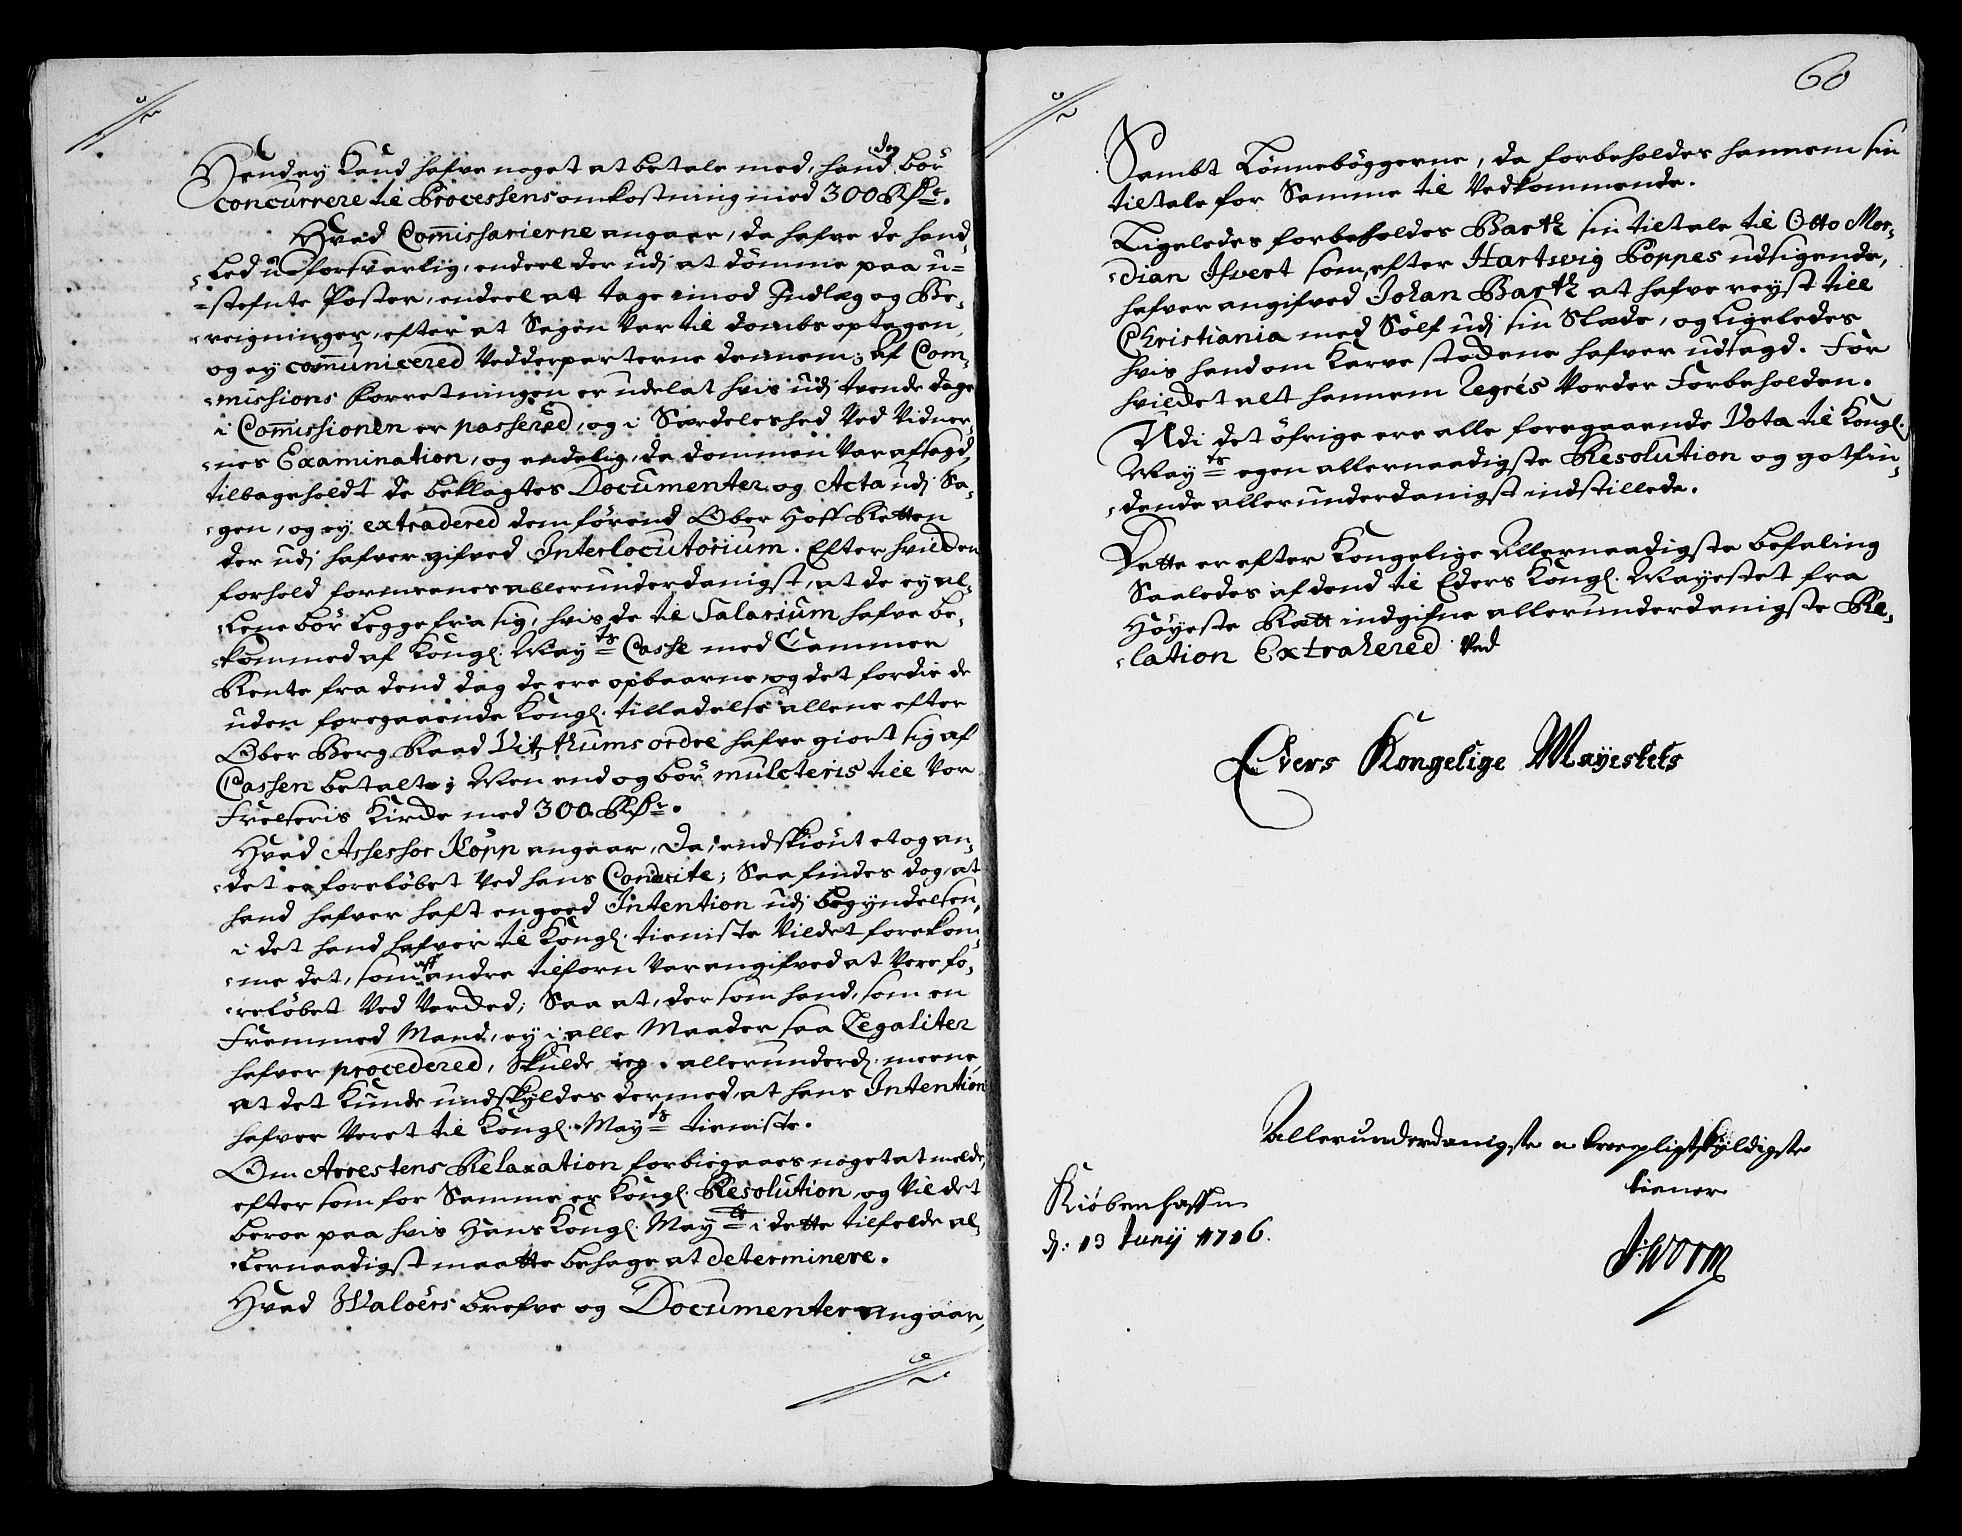 hend ey kand hafve noget at betale med, hand dog bör
concurrere til Processens omkostning med 300 Rdr.
Hvad Commissarierne angaar, da hafve de hand-
-led uforsvarlig, endeel der udj at dömme paa u=
=stefnte Poster, endeel at tage imod Indlæg og Be-
-reigninger, efter at Sagen var til dombs optagen,
og ey communicered Vedderparterne dennem; af Com-
-missions forretningen er udelat hvis udj tvende dage
i Commissionen er passered, og i Særdeleshed ved Vidner-
-nes Examination, og endelig, da dommen var afsagd,
tilbageholdt de beklagtes Documenter og Acta udj Sa-
-gen, og ey extradered dem förend Ober Hoff Retten
der udj hafver gifved Interlocutorium. Efter hvilcken
forhold formeenes allerunderdanigst, at de ey al-
-lene bör legge fra sig, hvis de til Salarium hafve be-
-kommed af Kongl. Mayts Casse med Cammer
Rente fra dend dag de ere opbaarne, og det fordie de
uden foregaaende Kongl. tilladelse allene efter
Ober Berg Raad Vitzthums ordre hafve giort sig af
Cassen betalte; Men end og bör mulcteris till Vor
Frelseris Kircke med 300 Rdr.
Hvad Assessor Köpp angaar, Da, endskiönt et og an-
-det er foreløbet ved hans Conduite; Saa findes dog, at
hand hafver haft en goed Intention udj begyndelsen,
i det hand hafver til Kongl. tieniste vildet forekom-
-me det, som aff andre tilforn var angifved at være fo-
-reløbet ved Vercked; Saa at, der som hand, som en
Fremmed Mand, ey i alle Maader saa Legaliter
hafver procedered, Skulde jeg allerunderd. meene,
at det kunde undskyldes dermed, at hans Intention
hafver veret til Kongl. Mayts tieniste.
Om Arrestens Relaxation forbiegaaes noget at melde,
efter som for Samme er Kongl. Resolution, og vil det
beroe paa hvis Hans Kongl. Mayts i dette tilfelde al-
-lernaadigst maatte behage at determinere.
Hvad Waloërs brefve og Documenter angaar,
60
Sambt Lönnebögerne, da forbeholdes hannem sin
tiltale for Samme til Vedkommende.
Ligeledes forbeholdes Barth sin tiltale til Otto Mer-
-dian Isvert som, efter Hartwig Poppes udsigende,
hafver angifved Johan Barth at hafve reyst till
Christiania med Sölf udj sin Slæde, og ligeledes
hvis hand om Karvestedene hafver udsagd. For
hvilcket alt hannem Regrés vorder Forbeholden.
Udi det öfrige ere alle foregaaende Vota til Kongl.
Mayts egen allernaadigste Resolution og gotfin-
-dende allerunderdanigst indstillede.
Dette er efter Kongelige Allernaadigste befaling
Saaledes af dend til Eders Kongl. Mayestet fra
Höyeste Rætt indgifne allerunderdanigste Re-
-lation Extrahered ved
Eders Kongelige Mayestets
Allerunderdanigste a troepligtskyldigste
tiener
Kiöbenhaffn
d: 13 Junij 1716.
J: Worm